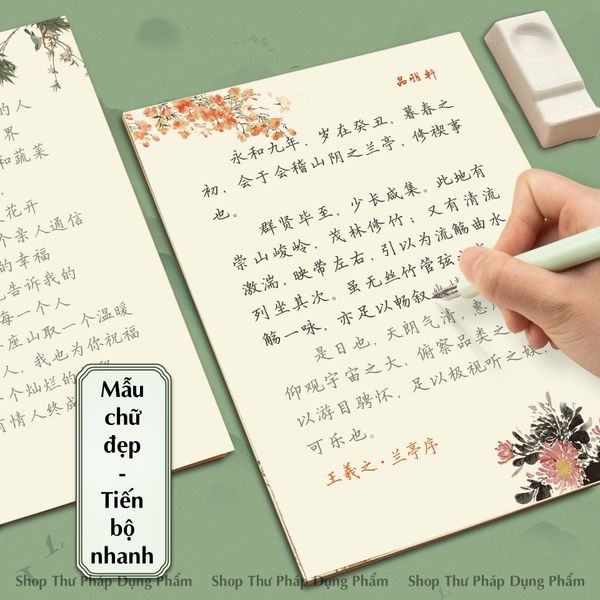 的人
界
和蔬菜
花开
个亲人通信
的幸福
告诉我的
每一个人
座山取一个温暖
人，我也为你祝福
个灿烂的
有情人终成
品雅轩
永和九年，岁在癸丑，暮春之
初，会于会稽山阴之兰亭，修禊事
也。
群贤毕至，少长咸集。此地有
崇山峻岭，茂林修竹；又有清流
激湍，映带左右，引以为流觞曲水
列坐其次。虽无丝竹管弦
觞一咏，亦足以畅叙
是日也，天朗气清，惠
仰观宇宙之大，俯察品类之
以游目骋怀，足以极视听之娱，
可乐也。
王羲之·兰亭序
Mẫu
chữ
đẹp
-
Tiến
bộ
nhanh
Shop Thư Pháp Dụng Phẩm Shop Thư Pháp Dụng Phẩm Shop Thư Pháp Dụng Phẩm